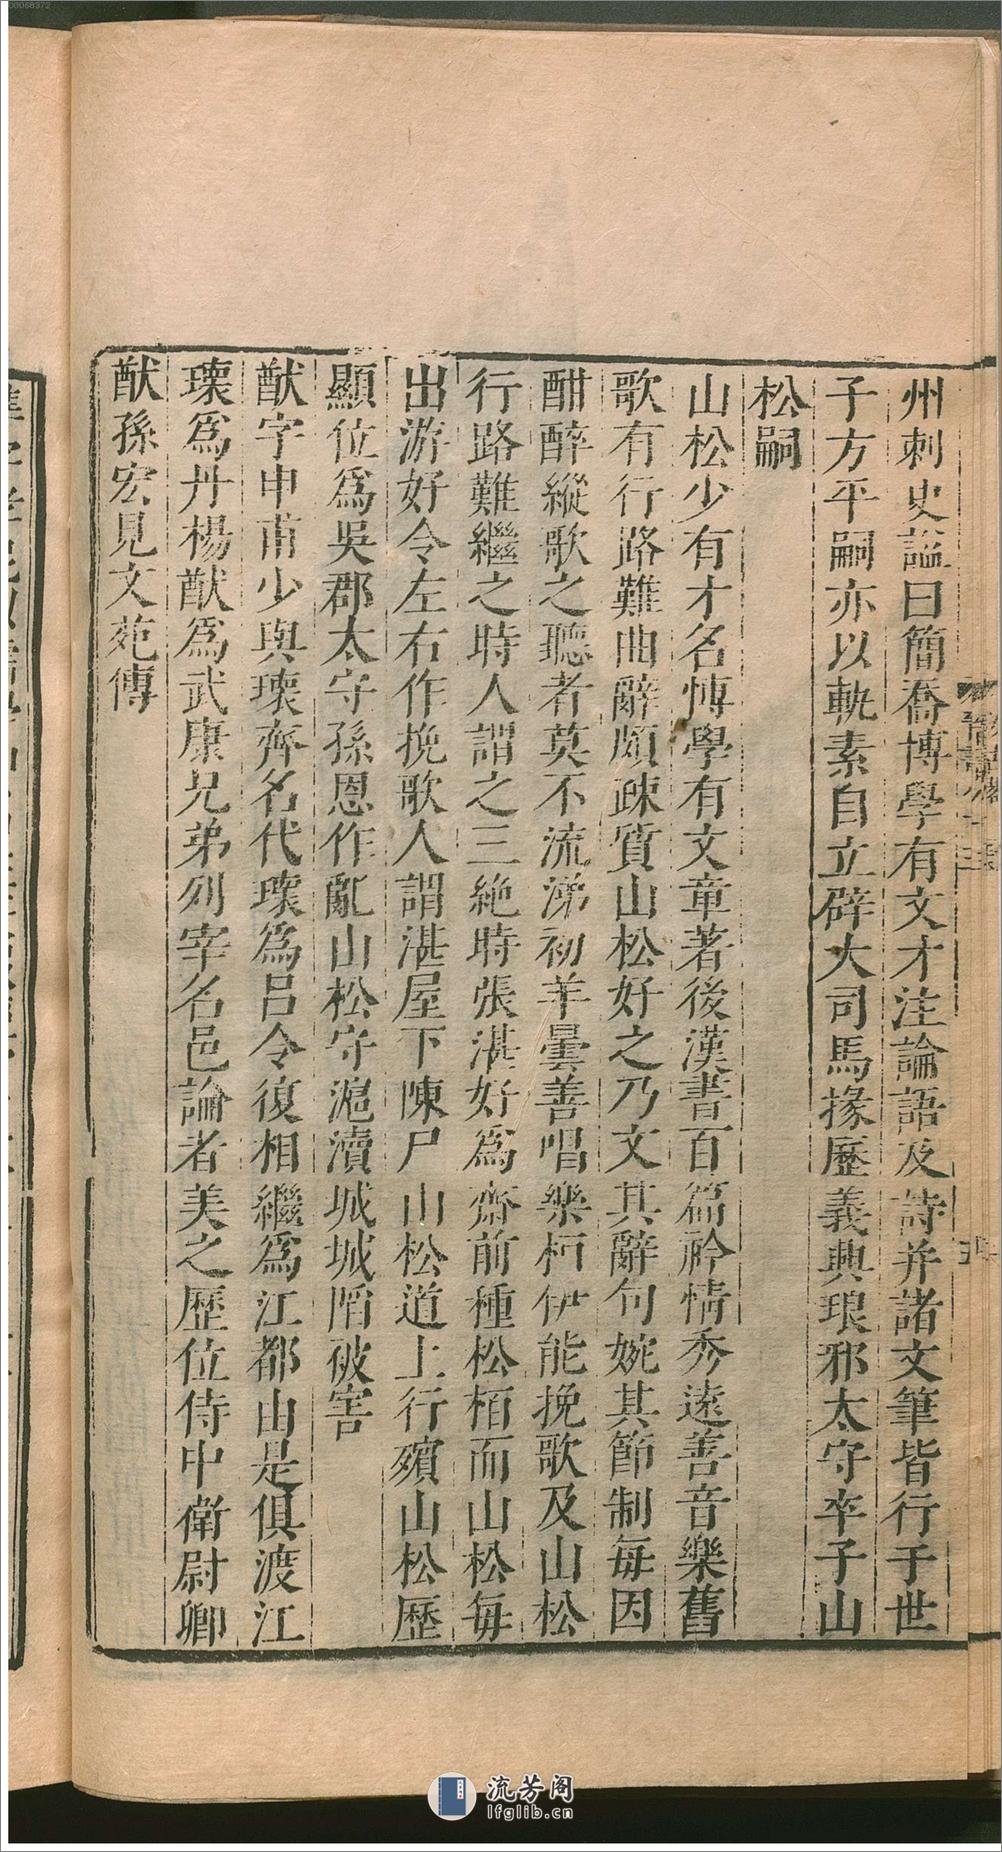 州刺史謚曰簡喬博學有文才注論語及詩并諸文筆皆行于世
子方平嗣亦以軌素自立辟大司馬掾歷義興琅邪太守卒子山
松嗣
山松少有才名博學有文章著後漢書百篇衿情秀遠善音樂舊
歌有行路難曲辭頗疎質山松好之乃文其辭句婉其節制每因
酣醉縱歌之聽者莫不流涕初羊曇善唱樂桓伊能挽歌及山松
行路難繼之時人謂之三絶時張湛好爲齋前種松栢而山松每
出游好令左右作挽歌人謂湛屋下陳尸山松道上行殯山松歷
顯位爲吳郡太守孫恩作亂山松守滬瀆城城陷被害
猷字申甫少與瓌齊名代瓌爲呂令復相繼爲江都由是俱渡江
瓌爲丹楊猷爲武康兄弟列宰名邑論者美之歷位侍中衛尉卿
猷孫宏見文苑傳
流芳阁
lfglib.cn